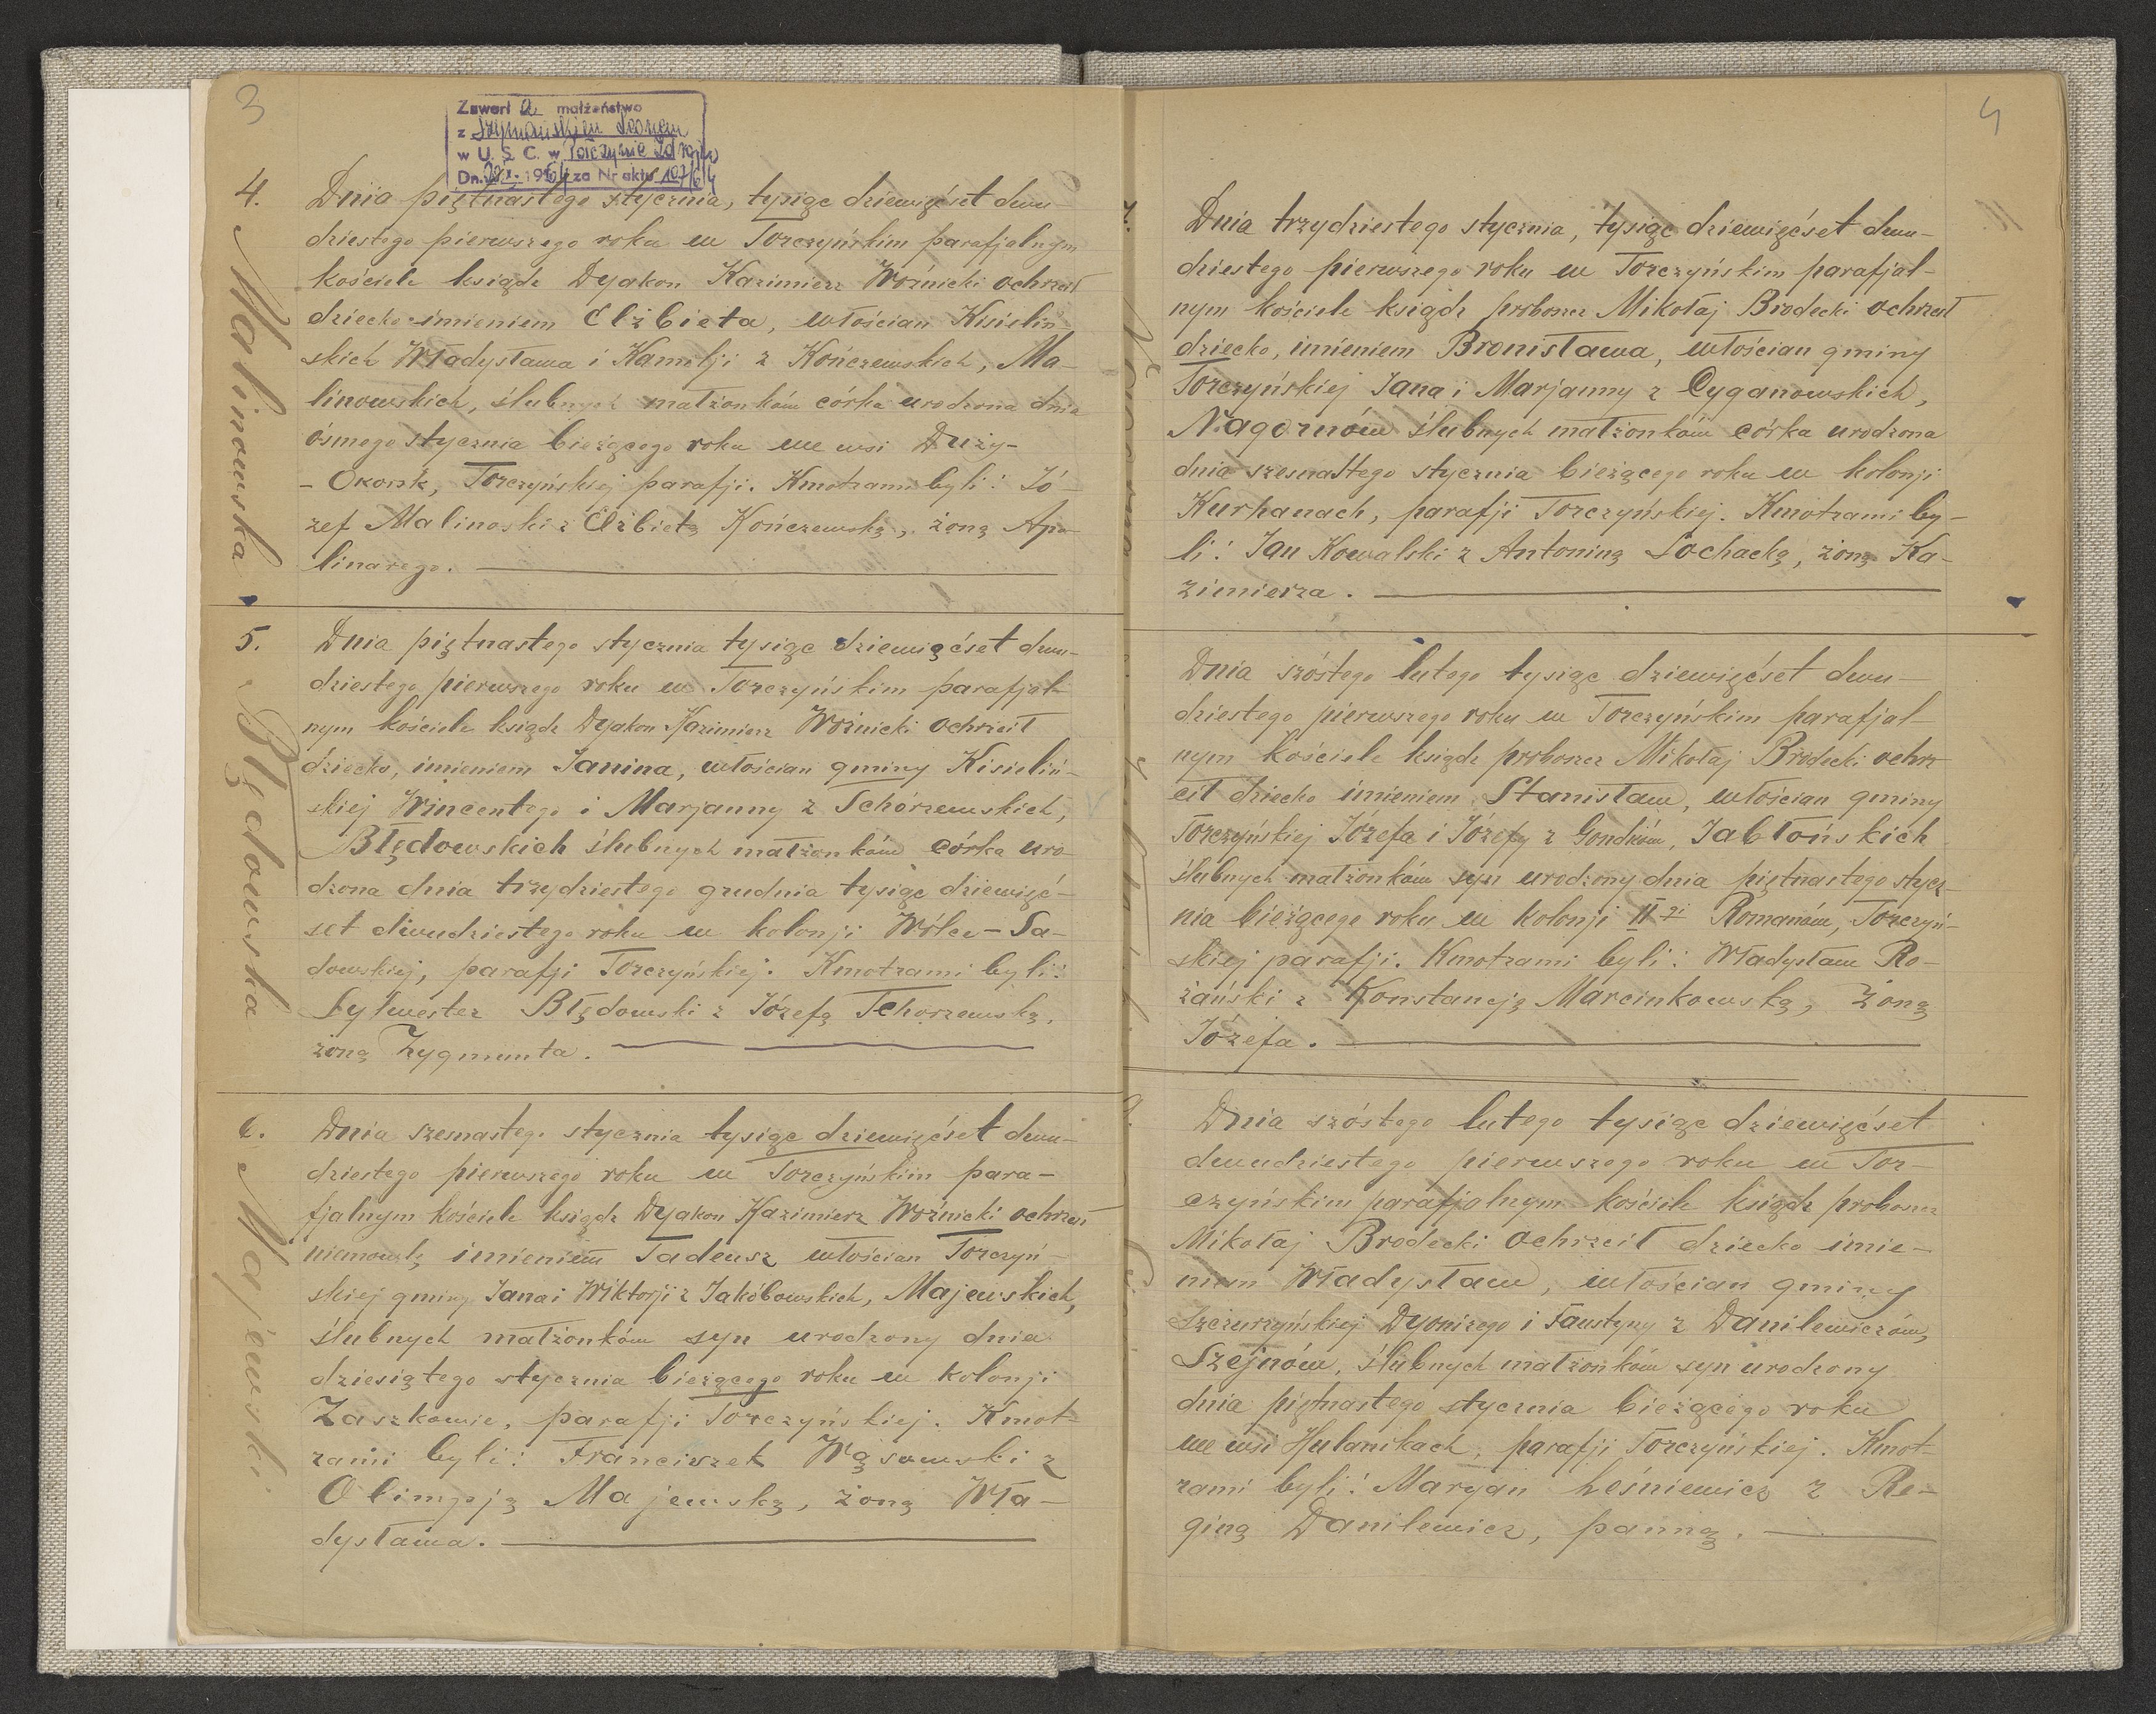 3
Zawarł a małżeństwo
z Szymańskim Leonem
w U. S. C. w Połczynie Zdroju
Dn. 1964 za Nr aktu 107/64
4.
Malinowska
Dnia piętnastego stycznia, tysiąc dziewięćset dwu-
dziestego pierwszego roku w Torczyńskim parafjalnym
kościele ksiądz Dyakon Kazimierz Woźnicki ochrzcił
dziecko imieniem Elżbieta, włościan Kisieliń-
skich Władysława i Kamilji z Kończewskich, Ma-
linowskich, ślubnych małżonków córka urodzona dnia
ósmego stycznia bieżącego roku we wsi Duży-
- Okorsk, Torczyńskiej parafji. Kmotrami byli: Jó-
zef Malinoski z Elżbietą Kończewską, żoną Apo-
linarego.
5.
Błędowska
Dnia piętnastego stycznia tysiąc dziewięćset dwu-
dziestego pierwszego roku w Torczyńskim parafjal-
nym kościele ksiądz Dyakon Kazimierz Woźnicki ochrzcił
dziecko, imieniem Janina, włościan gminy Kisieliń-
skiej Wincentego i Marjanny z Tchórzewskich,
Błędowskich ślubnych małżonków córka uro-
dzona dnia trzydziestego grudnia tysiąc dziewięć-
set dwudziestego roku w kolonji Wólce-Sa-
dowskiej, parafji Torczyńskiej. Kmotrami byli:
Sylwester Błędowski z Józefą Tchorzewską,
żoną Zygmunta.
6.
Majewski
Dnia szesnastego stycznia tysiąc dziewięćset dwu-
dziestego pierwszego roku w Torczyńskim para-
fjalnym kościele ksiądz Dyakon Kazimierz Woźnicki ochrzcił
niemowlę imieniem Tadeusz włościan Torczyń-
skiej gminy Jana i Wiktorji z Jakóbowskich, Majewskich,
ślubnych małżonków syn urodzony dnia
dziesiątego stycznia bieżącego roku w kolonji
Zaszkowie, parafji Torczyńskiej. Kmot-
rami byli: Franciszek Wąsowski z
Olimpją Majewską, żoną Wła-
dysława.
4
7.
Dnia trzydziestego stycznia, tysiąc dziewięćset dwu-
dziestego pierwszego roku w Torczyńskim parafjal-
nym kościele ksiądz proboszcz Mikołaj Brodecki ochrzcił
dziecko, imieniem Bronisława, włościan gminy
Torczyńskiej Jana i Marjanny z Cyganowskich,
Nagornów ślubnych małżonków córka urodzona
dnia szesnastego stycznia bieżącego roku w kolonji
Kurhanach, parafji Torczyńskiej. Kmotrami by-
li: Jan Kowalski z Antoniną Sochacką, żoną Ka-
zimierza.
Dnia szóstego lutego tysiąc dziewięćset dwu-
dziestego pierwszego roku w Torczyńskim parafjal-
nym kościele ksiądz proboszcz Mikołaj Brodecki ochrz
cił dziecko imieniem Stanisław, włościan gminy
Torczyńskiej Józefa i Józefy z Gondków, Jabłońskich
ślubnych małżonków syn urodzony dnia piętnastego stycz-
nia bieżącego roku w kolonji II gi Romanów, Torczyń-
skiej parafji. Kmotrami byli: Władysław Ro-
żański z Konstancją Marcinkowską, żoną
Józefa.
Dnia szóstego lutego tysiąc dziewięćset
dwudziestego pierwszego roku w Tor-
czyńskim parafjalnym kościele ksiądz proboszcz
Mikołaj Brodecki ochrzcił dziecko imie-
niem Władysław, włościan gminy
Szczurzyńskiej Dyonizego i Faustyny z Danilewiczów,
Szejnów, ślubnych małżonków syn urodzony
dnia piętnastego stycznia bieżącego roku
we wsi Hulanikach, parafji Torczyńskiej. Kmot-
rami byli: Maryan Leśniewicz z Re-
giną Danilewicz, panną.